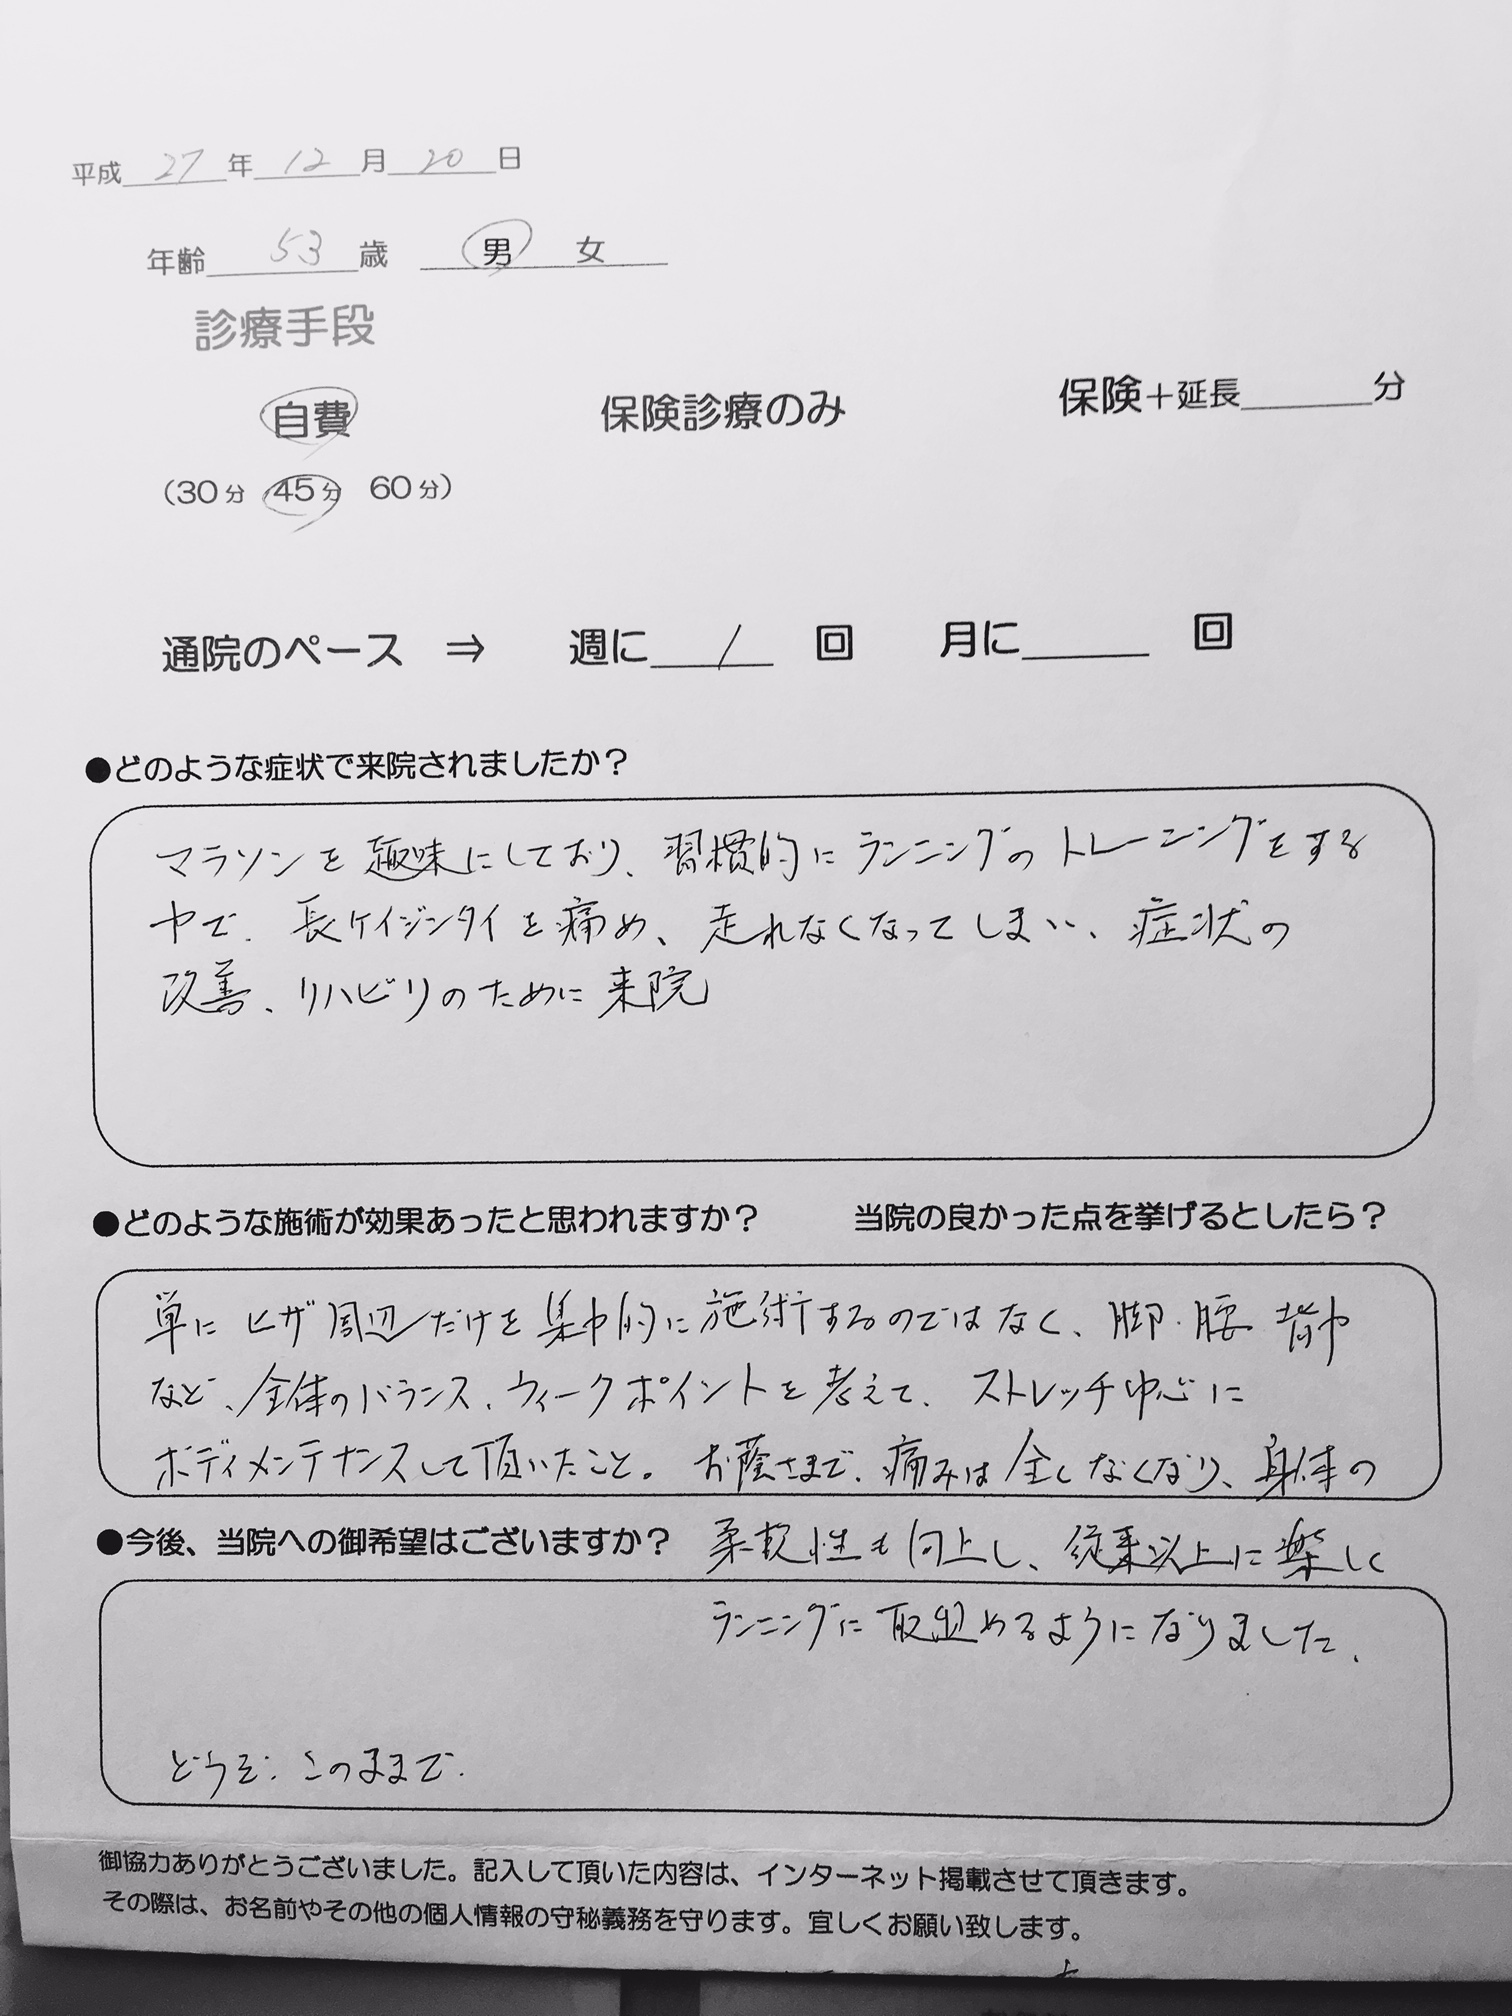 平成 27 年 12 月 20 日
年齢 53 歳 男 女
診療手段
自費 保険診療のみ 保険＋延長 分
（30分 45分 60分）
通院のペース ⇒ 週に 1 回 月に 回
●どのような症状で来院されましたか？
マラソンを趣味にしており、習慣的にランニングのトレーニングをする
中で、長ケイジンタイを痛め、走れなくなってしまい、症状の
改善、リハビリのために来院
●どのような施術が効果あったと思われますか？ 当院の良かった点を挙げるとしたら？
単にヒザ周辺だけを集中的に施術するのではなく、脚・腰 背中
など、全体のバランス、ウィークポイントを考えて、ストレッチ中心に
ボディメンテナンスして頂いたこと。お蔭さまで、痛みは全くなくなり、身体の
●今後、当院への御希望はございますか？ 柔軟性も向上し、従来以上に楽しく
ランニングに取組めるようになりました、
どうぞ、このままで、
御協力ありがとうございました。記入して頂いた内容は、インターネット掲載させて頂きます。
その際は、お名前やその他の個人情報の守秘義務を守ります。宜しくお願い致します。